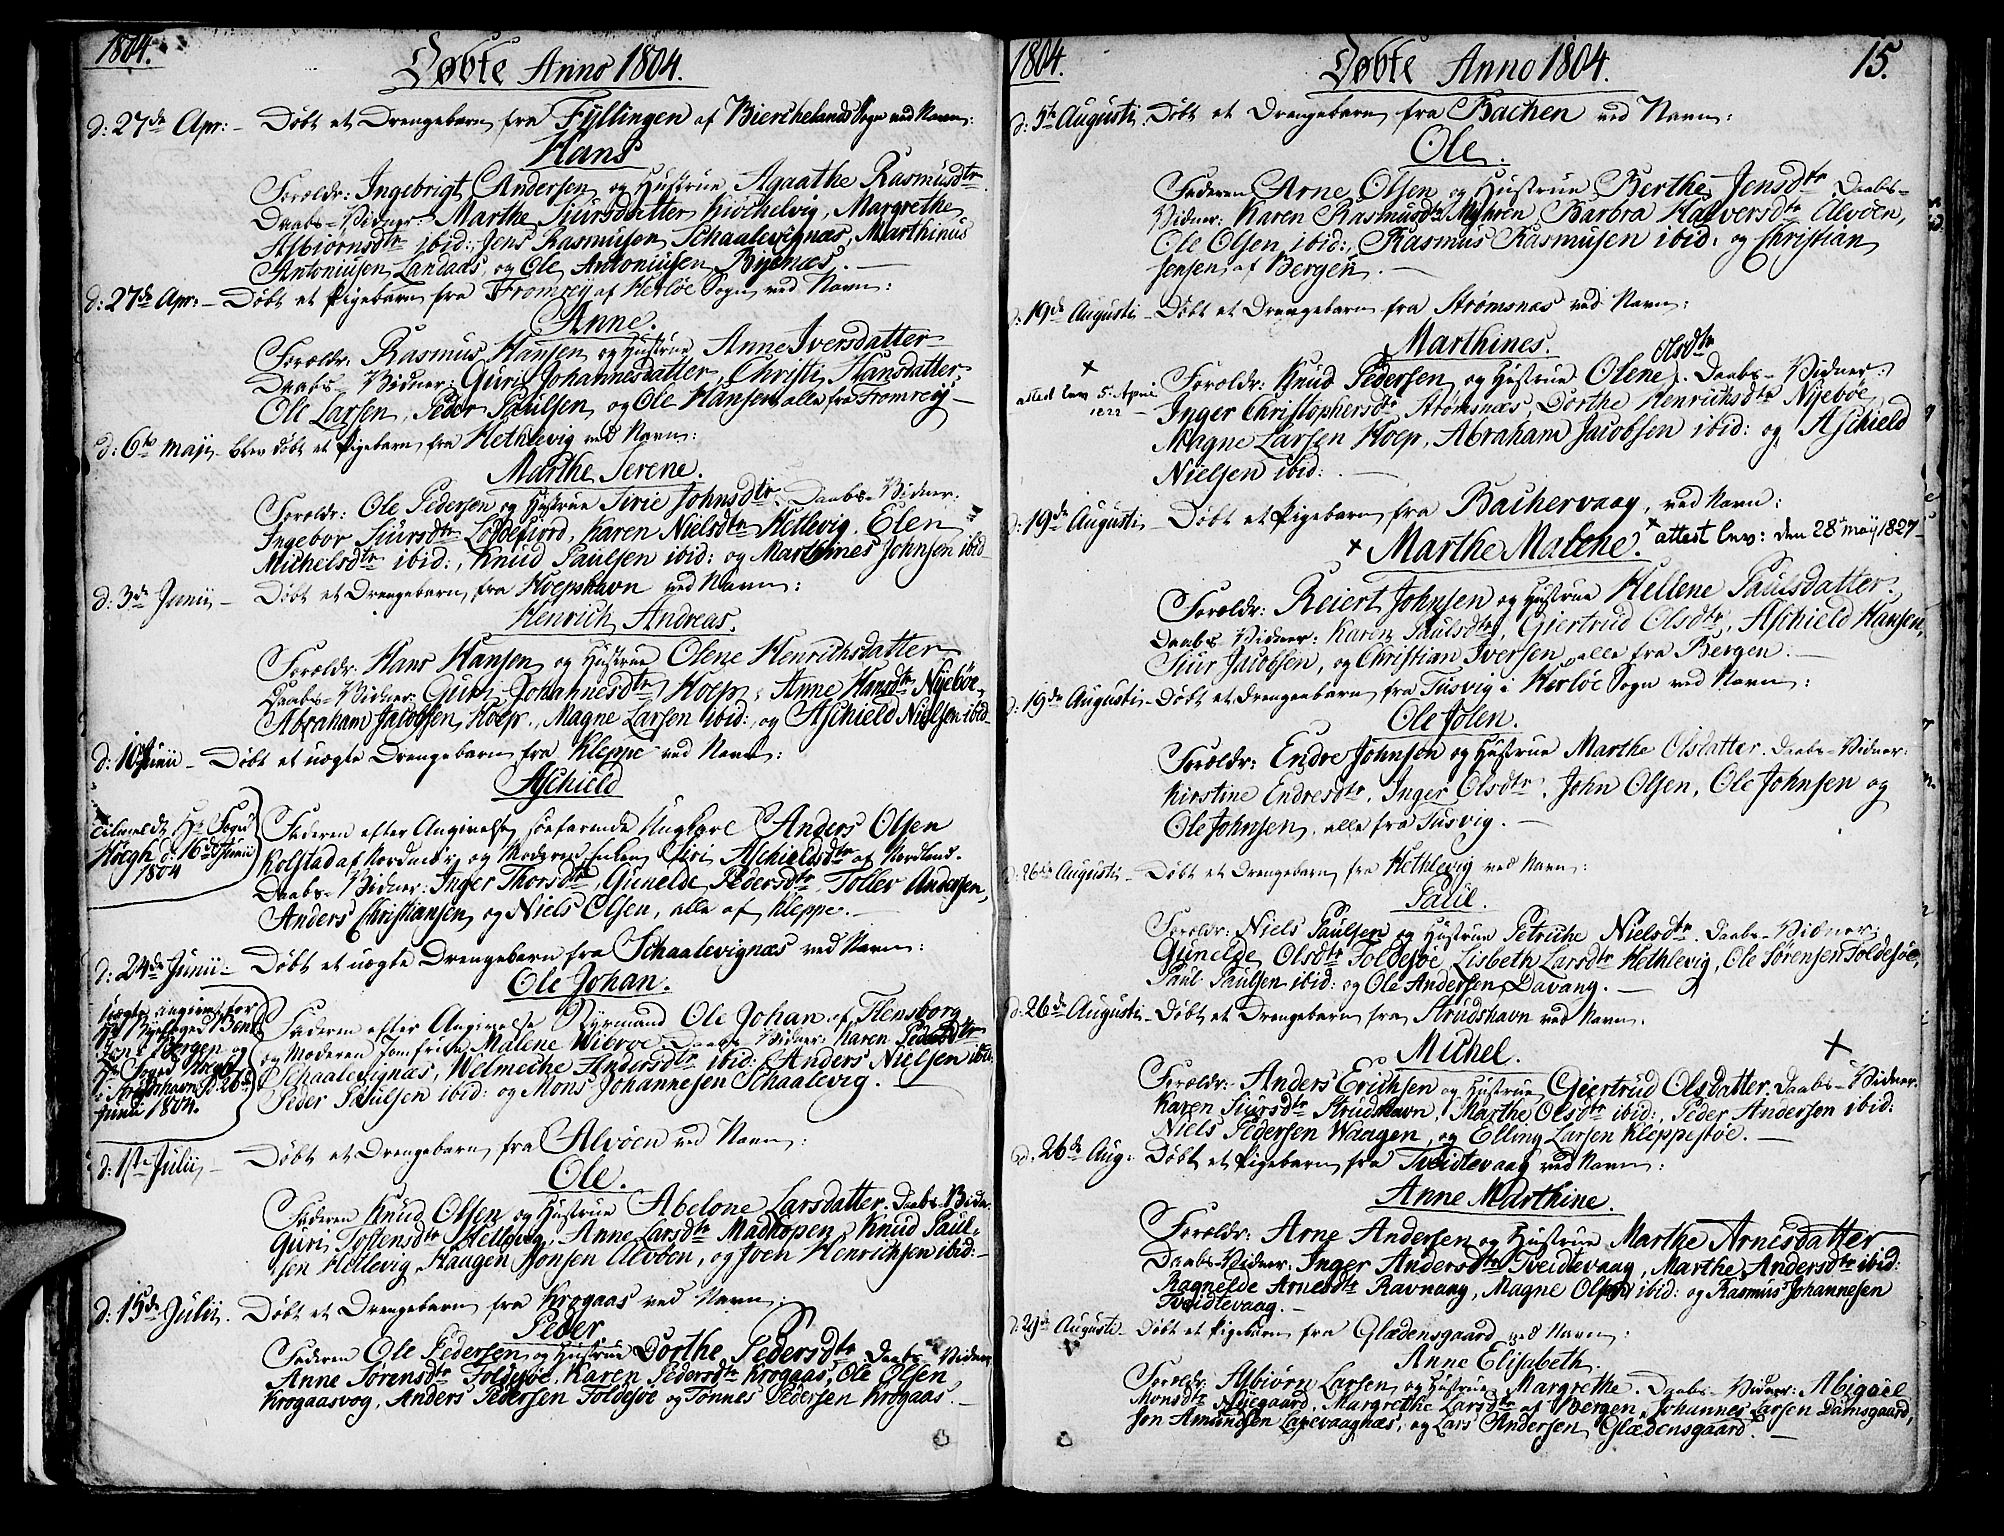 1804.
Døbte Anno 1804.
d: 27de Apr: – Døbt et Drengebarn fra Fyllingen af Bierchelands Sogn ved Navn:
Hans
Foreldr: Ingebrigt Andersen og Hustrue Agaathe Rasmusdtr
Daabs-Vidner: Marthe Siursdatter Kiöchelvig, Margrethe
Asbiornsdtr ibid: Jens Rasmusen Schaalevignæs, Marthinus
Antoniusen Landaas, og Ole Antoniusen Byenæs. –
d: 27de Apr: – Døbt et Pigebarn fra Fromrey af Herløe Sogn ved Navn:
Anne.
Foreldr: Rasmus Hansen og Hustrue Anne Iversdatter
Daabs-Vidner: Guri Johannesdatter, Christi Hansdatter,
Ole Larsen, Peder Paulsen, og Ole Hansen alle fra Fromrey –
d: 6te Maji – blev døbt et Pigebarn fra Hethlevig ved Navn:
Marthe Serene.
Foreldr: Ole Pedersen og Hustrue Sirie Johnsdtr. Daabs-Vidner:
Ingebor Siursdtr Loddefiord, Karen Nielsdtr Hetlevig. Elen
Michelsdtr ibid:, Knud Paulsen ibid: og Marthines Johnsen ibid
d: 3de Junii – Døbt et Drengebarn fra Hoepshavn ved Navn:
Henrich Andreas.
Foreldr: Hans Hansen og Hustrue Olene Henrichsdatter
Daabs-Vidner: Guri Johannesdtr Hoep, Anne Hansdtr Nyebøe,
Abraham Jacobsen Hoep, Magne Larsen ibid: og Aschield Nielsen ibid
d: 10 Junii – Døbt et uægte Drengebarn fra Kleppe ved Navn:
Aschield
tilmeldt Hr Fogd
Høegh d: 16 Junii
1804
Faderen efter Angivelse søefarende Ungkarl Anders Olsen
Kolstad af Nordmør og Moderen Enken Siri Aschieldsdtr af Nordland.
Daabs-Vidner: Inger Thorsdtr, Gunelde Pedersdtr, Toller Andersen,
Anders Christiansen og Niels Olsen, alle af Kleppe. –
d: 24de Junii – Døbt et uægte Drengebarn fra Schaalevignæs ved Navn:
Ole Johan.
angiven for
i Bergen og
Hr Foged Høegh
i Strudshavn d: 26
Junii 1804.
Faderen efter Angivelse Styrmand Ole Johan af Flensborg
og Moderen Jomfrue Malene Wibroe. Daabs-Vidner: Karen Pedersdtr
Schaalevignæs, Welmeche Andersdtr ibid: Anders Nielsen ibid:
Peder Paulsen ibid: og Mons Johannesen Schaalevig. –
d: 1ste Julii – Døbt et Drengebarn fra Alvøen ved Navn:
Ole.
Faderen Knud Olsen og Hustrue Abelone Larsdatter. Daabs-Vidn:
Guri Tostensdtr Hetlevig, Anne Larsdtr Madhopen, Knud Paul-
sen Hetlevig, Haagen Jonsen Alvøen, og Joen Henrichsen ibid: –
d: 15de Julii. Døbt et Drengebarn fra Krogaas ved Navn:
Peder
Faderen Ole Pedersen og Hustrue Dorthe Pedersdtr, Daabs-Vidner
Anne Sørensdtr Foldesøe, Karen Pedersdtr Krogaas, Ole Olsen
Krogaasvog, Anders Pedersen Foldesøe og Tønnes Pedersen Krogaas. –
1804. Døbte Anno 1804. 15.
d: 5te Augusti. Døbt et Drengebarn fra Bachen ved Navn:
Ole.
Faderen Arne Olsen og Hustrue Berthe Jensdtr Daabs-
Vidner: Karen Rasmusdtr Myhren, Barbra Halversdtr Alvøen,
Ole Olsen ibid:, Rasmus Rasmusen ibid: og Christian
Jensen af Bergen. –
d: 19de Augusti – Døbt et Drengebarn fra Strømsnæs ved Navn:
Marthines.
attest lev. 5. April
1822 –
Foreldr: Knud Pedersen og Hustrue Olene Olsdtr. Daabs-Vidner:
Inger Christophersdtr Strømsnæs, Dorthe Henrichsdtr Nyebøe,
Magne Larsen Hoep, Abraham Jacobsen ibid: og Aschield
Nielsen ibid: –
d: 19de Augusti – Døbt et Pigebarn fra Bachervaag, ved Navn:
Marthe Malene. attest lev: den 28 may 1827
Foreldr: Reiert Johnsen og Hustrue Hellene Paulsdatter.
Daabs-Vidner: Karen Paulsdtr, Giertrud Olsdtr, Aschield Hansen,
Siur Jacobsen, og Christian Iversen, alle fra Bergen. –
d: 19de Augusti – Døbt et Drengebarn fra Tusvig i Herløe Sogn ved Navn:
Ole Jolen.
Foreldr: Endre Johnsen og Hustrue Marthe Olsdatter. Daabs-Vidner:
Kirstine Endresdtr, Inger Olsdtr, John Olsen, Ole Johnsen og
Ole Johnsen, alle fra Tusvig. –
d: 26de Augusti – Døbt et Drengebarn fra Hethlevig ved Navn:
Paul.
Foreldr: Niels Paulsen og Hustrue Petriche Nielsdtr. Daabs-Vidner:
Gunelde Olsdtr Foldesøe, Lisbeth Larsdtr Hethlevig, Ole Sørensen Foldesøe,
Paul Paulsen ibid: og Ole Andersen Davang. –
d: 26de Augusti – Døbt et Drengebarn fra Strudshavn ved Navn.
Michel.
Foreldr: Anders Erichsen og Hustrue Giertrud Olsdatter. Daabs-Vidner:
Karen Siursdtr Strudshavn, Marthe Olsdtr ibid:, Peder Andersen ibid:
Niels Pedersen Waagen, og Elling Larsen Kleppestøe. –
d: 26de Aug: Døbt et Pigebarn fra Tveidtevaag ved Navn:
Anne Marthine.
Foreldr: Arne Andersen og Hustrue Marthe Arnesdatter
Daabs-Vidner: Inger Andersdtr Tveidtevaag, Marthe Andersdtr ibid:
Ragnelde Arnesdtr Ravnang, Magne Olsen ibid: og Rasmus Johannesen
Tveidtevaag. –
d: 29de Augusti – Døbt et Pigebarn fra Glædensgaard ved Navn:
Anne Elisabeth.
Foreldr: Asbiörn Larsen og Hustrue Margrethe. Daabs-Vidner: Abigael
Monsdtr Nyegaard, Margrethe Larsdtr af Bergen, Johannes Larsen Damsgaard,
Jon Amundsen Laxevaagnæs, og Lars Andersen Glædensgaard. –